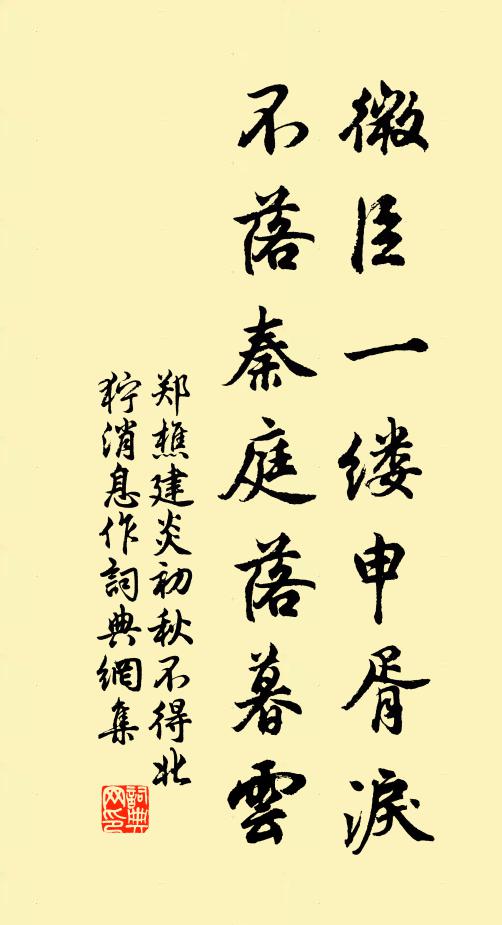 微臣一缕申胥淚
不落秦庭落暮雲
郑樵建炎初秋不得北
狩消息作詞典網集
詞典網印